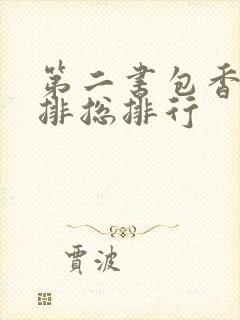 第二书包香
排总排行
贾波